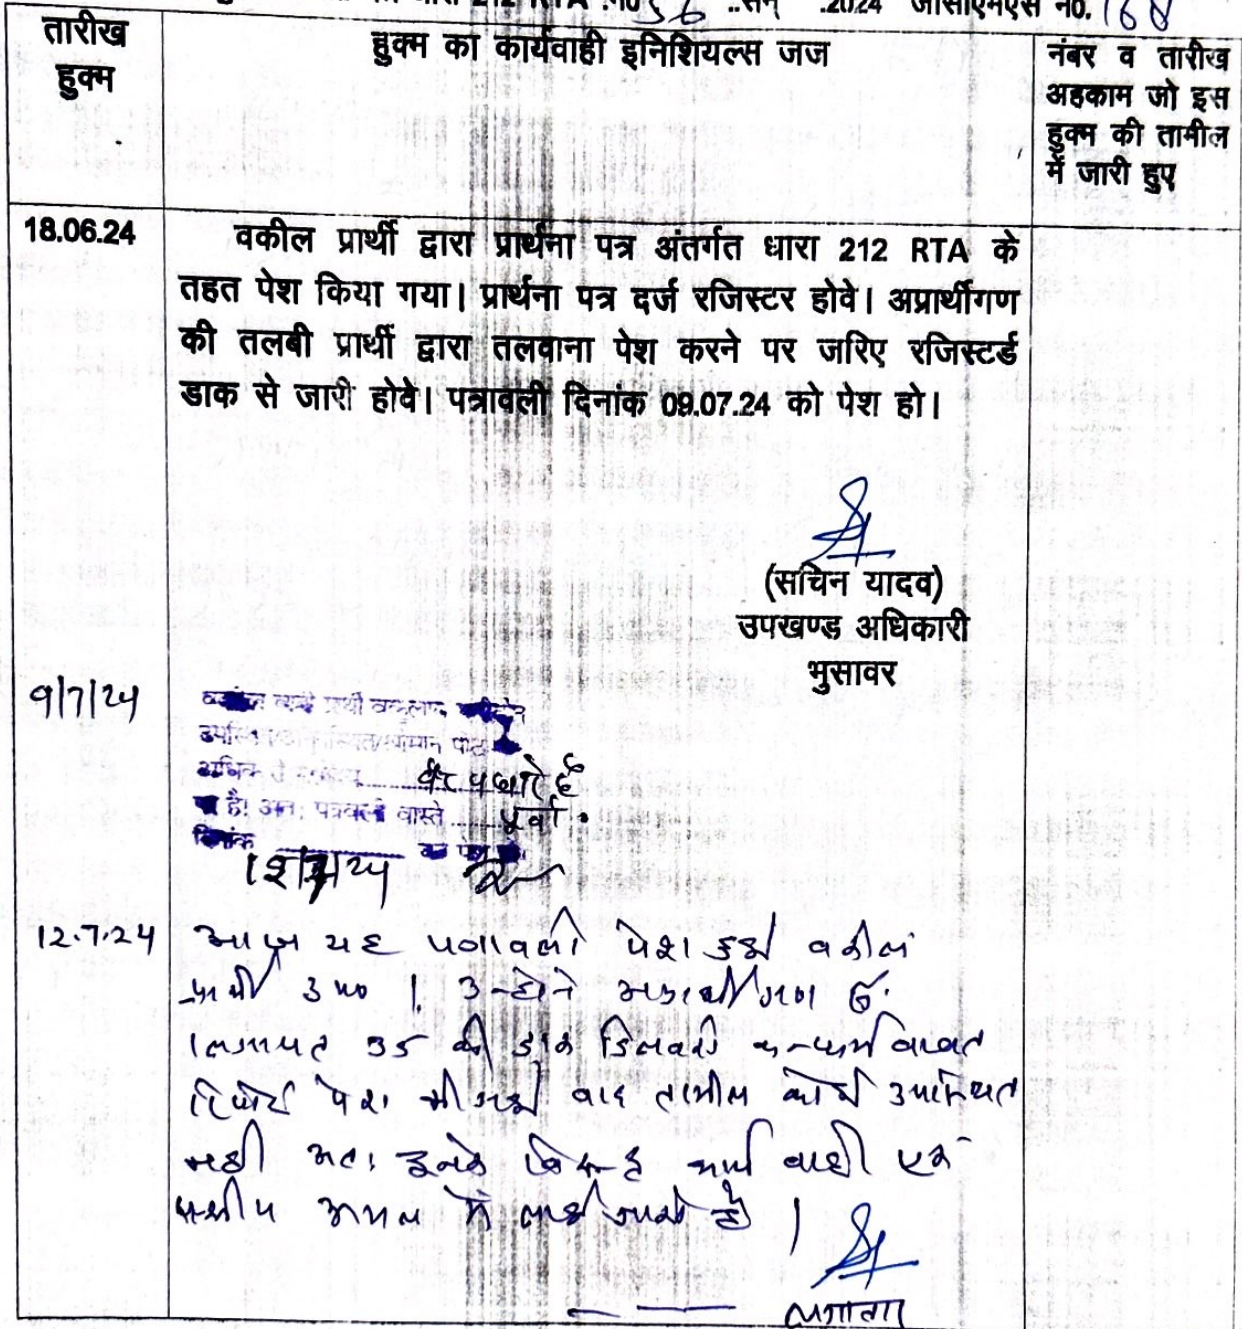 212 RTA .न0 56 ..सन् .2024 जीसीएमएस न0. 168
तारीख हुक्म
हुक्म का कार्यवाही इनिशियल्स जज
नंबर व तारीख
अहकाम जो इस
हुक्म की तामील
में जारी हुए
18.06.24
वकील प्रार्थी द्वारा प्रार्थना पत्र अंतर्गत धारा 212 RTA के
तहत पेश किया गया। प्रार्थना पत्र दर्ज रजिस्टर होवे। अप्रार्थीगण
की तलबी प्रार्थी द्वारा तलवाना पेश करने पर जरिए रजिस्टर्ड
डाक से जारी होवे। पत्रावली दिनांक 09.07.24 को पेश हो।
(सचिन यादव)
उपखण्ड अधिकारी
भुसावर
9/7/24
है। अतः पत्रावली वास्ते पूर्वा.
दिनांक
12.7.24 आज यह पत्रावली पेश हुई वकील
प्रार्थी उप0 । उन्होने अप्रार्थीगण
लगायत 35 की डाक डिलवरी कन्फर्म बाबत
रिपोर्ट पेश की गई बाद तामील कोई उपस्थित
नही अतः इनके विरूद्ध कार्यवाही एक
पक्षीय अमल में लाई जाती है ।
लगातार